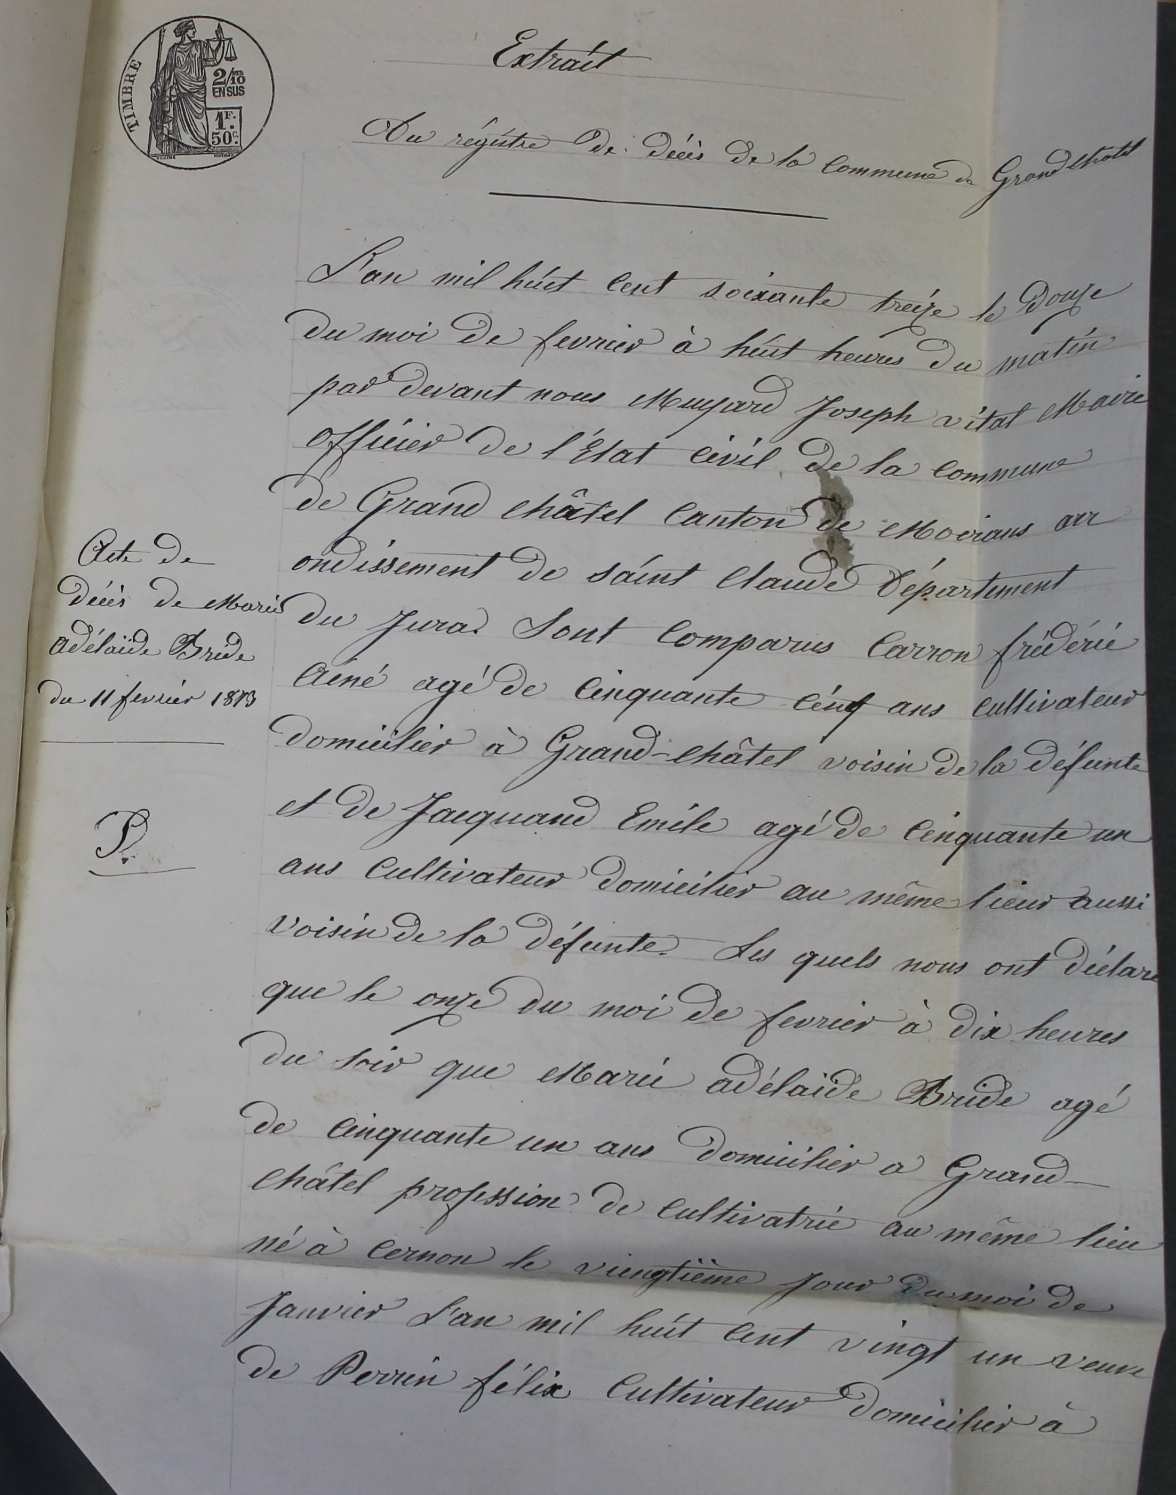 TIMBRE
2/10
EN SUS
1F.
50c.
Extrait
Du régistre de décès de la Commune de Grand Châtel
L'an mil huit Cent soixante treize le douze
du moi de fevrier à huit heures du matin
par devant nous Muyard Joseph vital Maire
officier de l'État Civil de la Commune
de Grand Châtel Canton de Moirans arr
ondissement de saint Claude Département
du Jura. Sont Comparus Carron frédéric
Ainé agé de Cinquante cinq ans cultivateur
domicilier à Grand-Châtel voisin de la défunte
et de Jacquand Emile agé de Cinquante un
ans Cultivateur domicilier au même lieur aussi
voisin de la défunte. Les quels nous ont déclaré
que le onze du moi de fevrier à dix heures
du soir que Marie adélaïde Bride agé
de Cinquante un ans domicilier a Grand-
Châtel profession de Cultivatrie au même lieu
né à Cernon le viengtième jour du moi de
Janvier L'an mil huit Cent vingt un veuve
de Perrin félix Cultivateur domicilier à
Acte de
décès de Marie
adélaïde Bride
du 11 fevrier 1873
P.